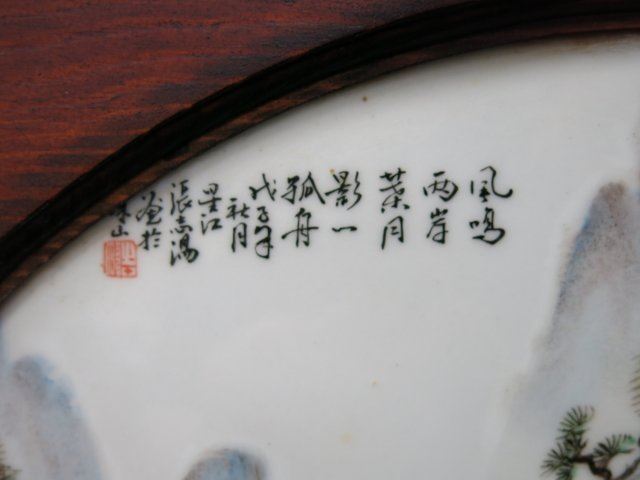 風鳴
两岸
葉月
影一
孤舟
戊子年
秋月
江
張志湯
畫於
珠山